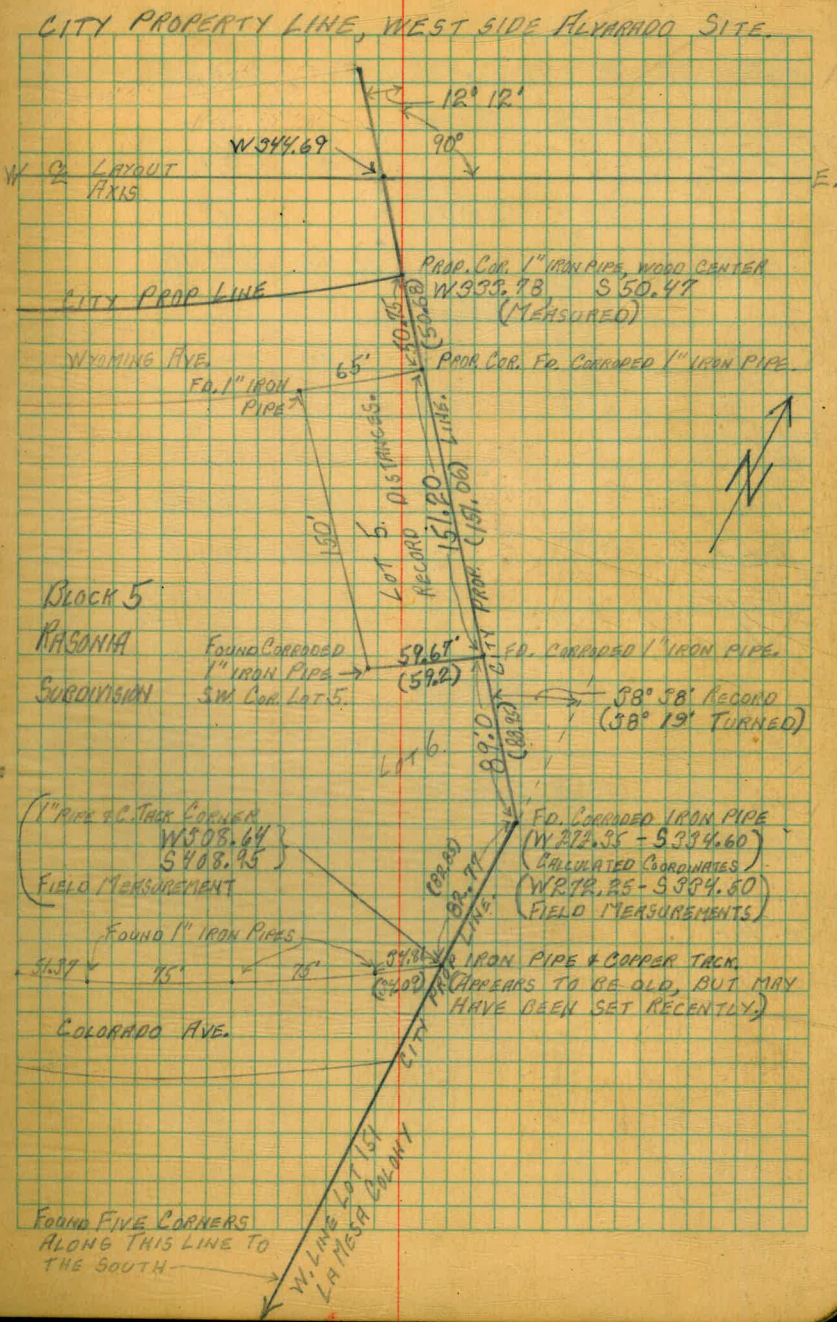 CITY PROPERTY LINE, WEST SIDE ALVARADO SITE.
12° 12'
W 344.69
90°
W ℄ LAYOUT
AXIS
E.
PROP. COR. 1" IRON PIPE, WOOD CENTER
W 333.78 S 50.47
(MEASURED)
CITY PROP LINE
50.75
(50.68)
WYOMING AVE.
65'
PROP. COR. FD. CORRODED 1" IRON PIPE.
FD. 1" IRON
PIPE
150'
LOT 5.
RECORD DISTANCES.
151.20
(151.06)
CITY PROP. LINE.
N
BLOCK 5
RASONIA
SUBDIVISION
FOUND CORRODED
1" IRON PIPE
S.W. COR. LOT 5.
59.67'
(59.2)
FD. CORRODED 1" IRON PIPE.
38° 38' RECORD
(38° 19' TURNED)
89.0
LOT 6.
(1" PIPE & C. TACK CORNER
W 308.64
S 408.95
FIELD MEASUREMENT
FD. CORRODED IRON PIPE
(W 272.35 - S 334.60)
CALCULATED COORDINATES
(W 272.25 - S 334.50)
FIELD MEASUREMENTS
(82.85)
82.77
FOUND 1" IRON PIPES
51.37
75'
75'
34.86
(34.09)
IRON PIPE & COPPER TACK.
(APPEARS TO BE OLD, BUT MAY
HAVE BEEN SET RECENTLY.)
COLORADO AVE.
CITY PROP LINE.
W. LINE LOT 151
LA MESA COLONY
FOUND FIVE CORNERS
ALONG THIS LINE TO
THE SOUTH